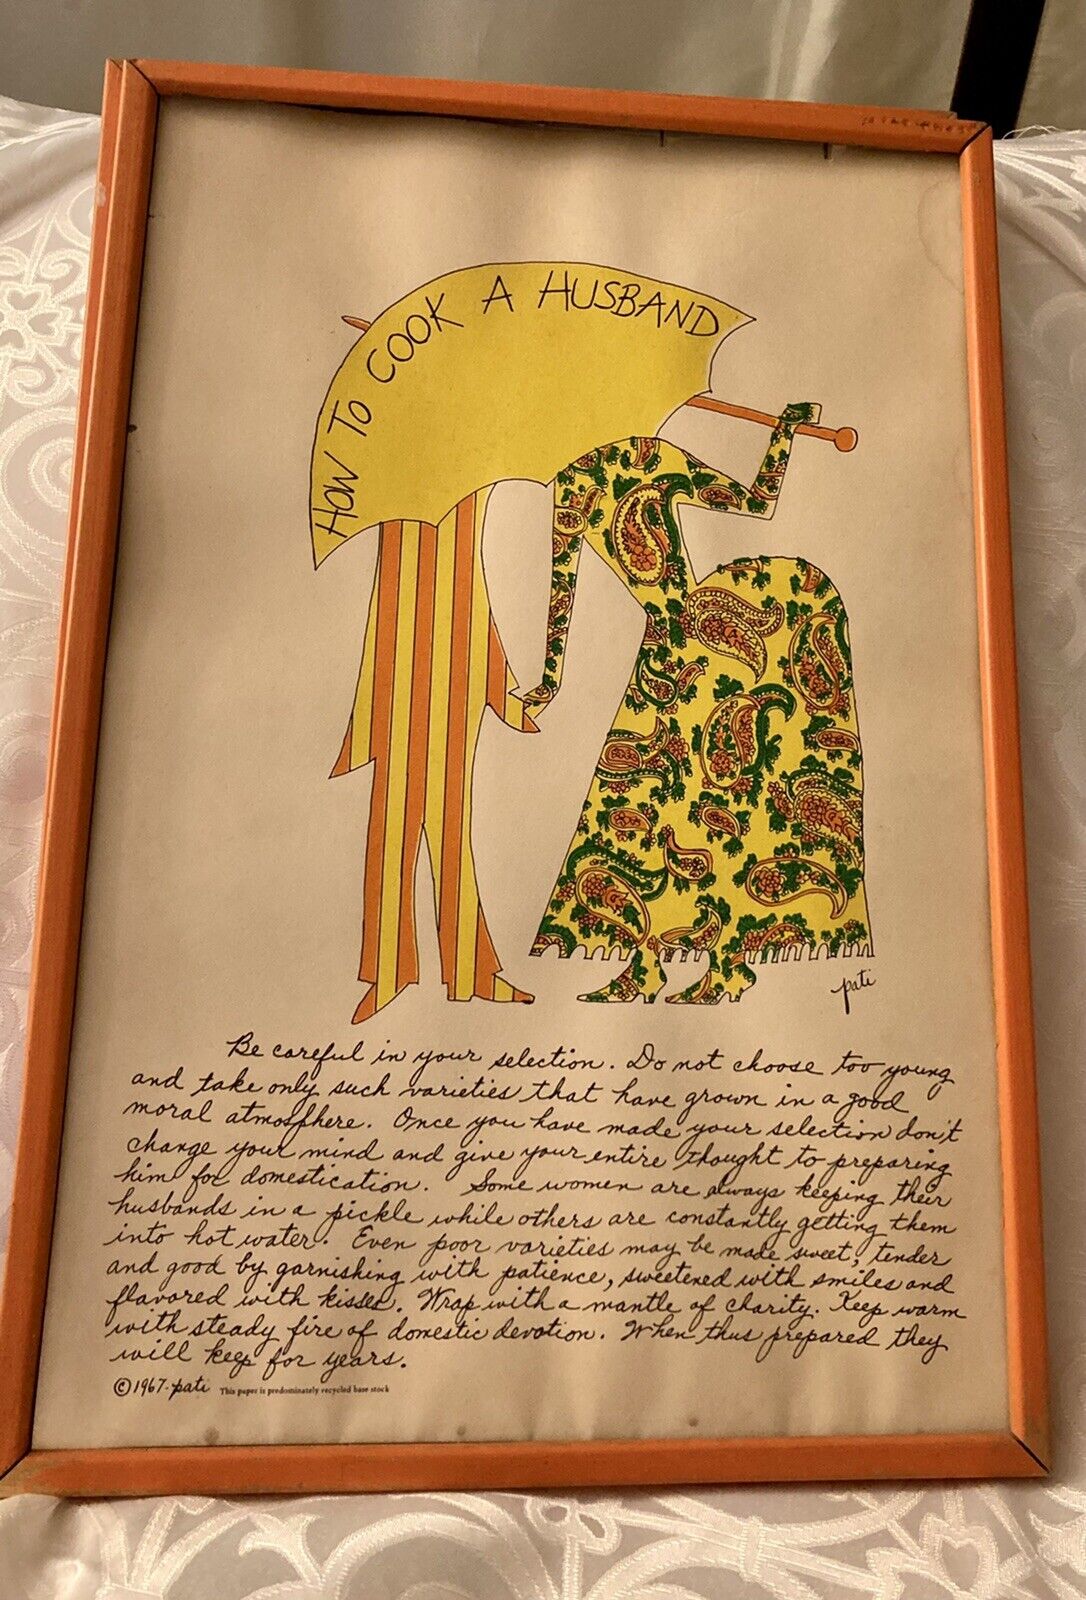 HOW TO COOK A HUSBAND
pati
Be careful in your selection. Do not choose too young
and take only such varieties that have grown in a good
moral atmosphere. Once you have made your selection don't
change your mind and give your entire thought to preparing
him for domestication. Some women are always keeping their
husbands in a pickle while others are constantly getting them
into hot water. Even poor varieties may be made sweet, tender
and good by garnishing with patience, sweetened with smiles and
flavored with kisses. Wrap with a mantle of charity. Keep warm
with steady fire of domestic devotion. When thus prepared they
will keep for years.
©1967·pati This paper is predominately recycled base stock